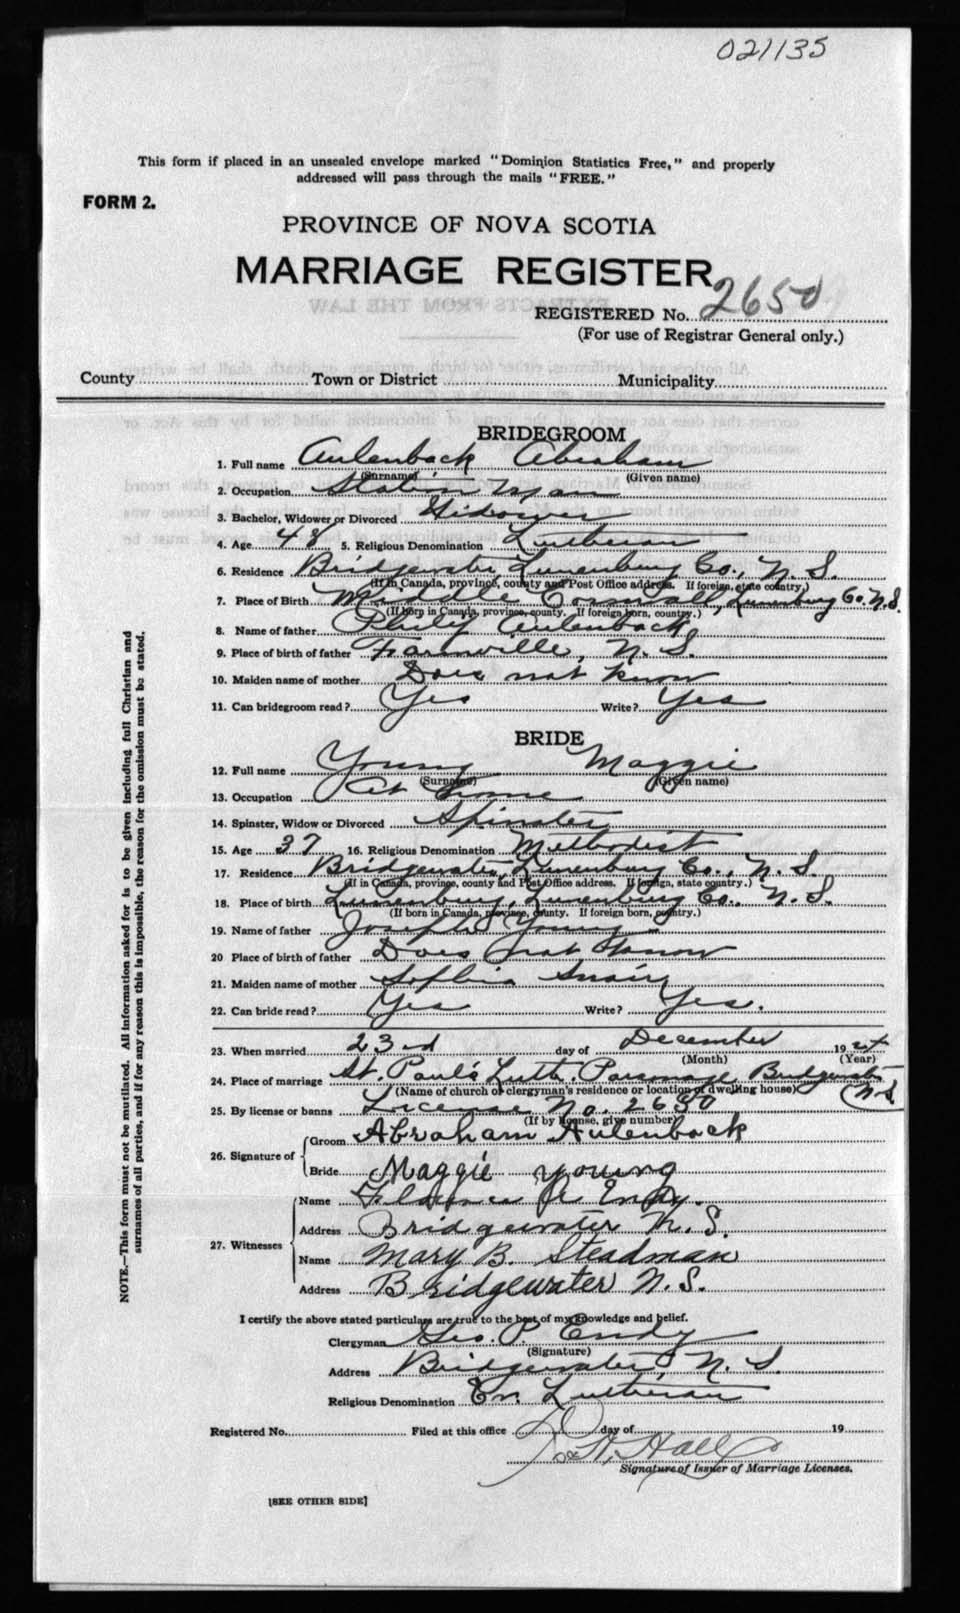 021135
This form if placed in an unsealed envelope marked "Dominion Statistics Free," and properly
addressed will pass through the mails "FREE."
FORM 2.
PROVINCE OF NOVA SCOTIA
MARRIAGE REGISTER
REGISTERED No. 2650
(For use of Registrar General only.)
County Town or District Municipality
BRIDEGROOM
1. Full name Aulenback Abraham
(Surname) (Given name)
2. Occupation Station Man
3. Bachelor, Widower or Divorced Widower
4. Age 48 5. Religious Denomination Lutheran
6. Residence Bridgewater, Lunenburg Co., N.S.
(If in Canada, province, county and Post Office address. If foreign, state country.)
7. Place of Birth Middle Cornwall, Lunenburg Co. N.S.
(If born in Canada, province, county. If foreign born, country.)
8. Name of father Philip Aulenback
9. Place of birth of father Farmville, N.S.
10. Maiden name of mother Does not know
11. Can bridegroom read? Yes Write? Yes
BRIDE
12. Full name Young Maggie
(Surname) (Given name)
13. Occupation At Home
14. Spinster, Widow or Divorced Spinster
15. Age 37 16. Religious Denomination Methodist
17. Residence Bridgewater, Lunenburg Co., N.S.
(If in Canada, province, county and Post Office address. If foreign, state country.)
18. Place of birth Lunenburg, Lunenburg Co., N.S.
(If born in Canada, province, county. If foreign born, country.)
19. Name of father Joseph Young
20 Place of birth of father Does not know
21. Maiden name of mother Sophia Snair
22. Can bride read? Yes Write? Yes.
23. When married 23rd day of December 1924
(Month) (Year)
24. Place of marriage St. Paul's Luth. Parsonage Bridgewater
(Name of church or clergyman's residence or location of dwelling house) N.S.
25. By license or banns License No. 2650
(If by license, give number)
26. Signature of Groom Abraham Aulenback
Bride Maggie Young
27. Witnesses Name A Endy.
Address Bridgewater N.S.
Name Mary B. Steadman
Address Bridgewater N.S.
I certify the above stated particulars are true to the best of my knowledge and belief.
Clergyman Geo. P. Endy
(Signature)
Address Bridgewater, N.S.
Religious Denomination Ev. Lutheran
Registered No. Filed at this office day of 19
Hall
Signature of Issuer of Marriage Licenses.
[SEE OTHER SIDE]
NOTE.—This form must not be mutilated. All information asked for is to be given including full Christian and
surnames of all parties, and if for any reason this is impossible, the reason for the omission must be stated.